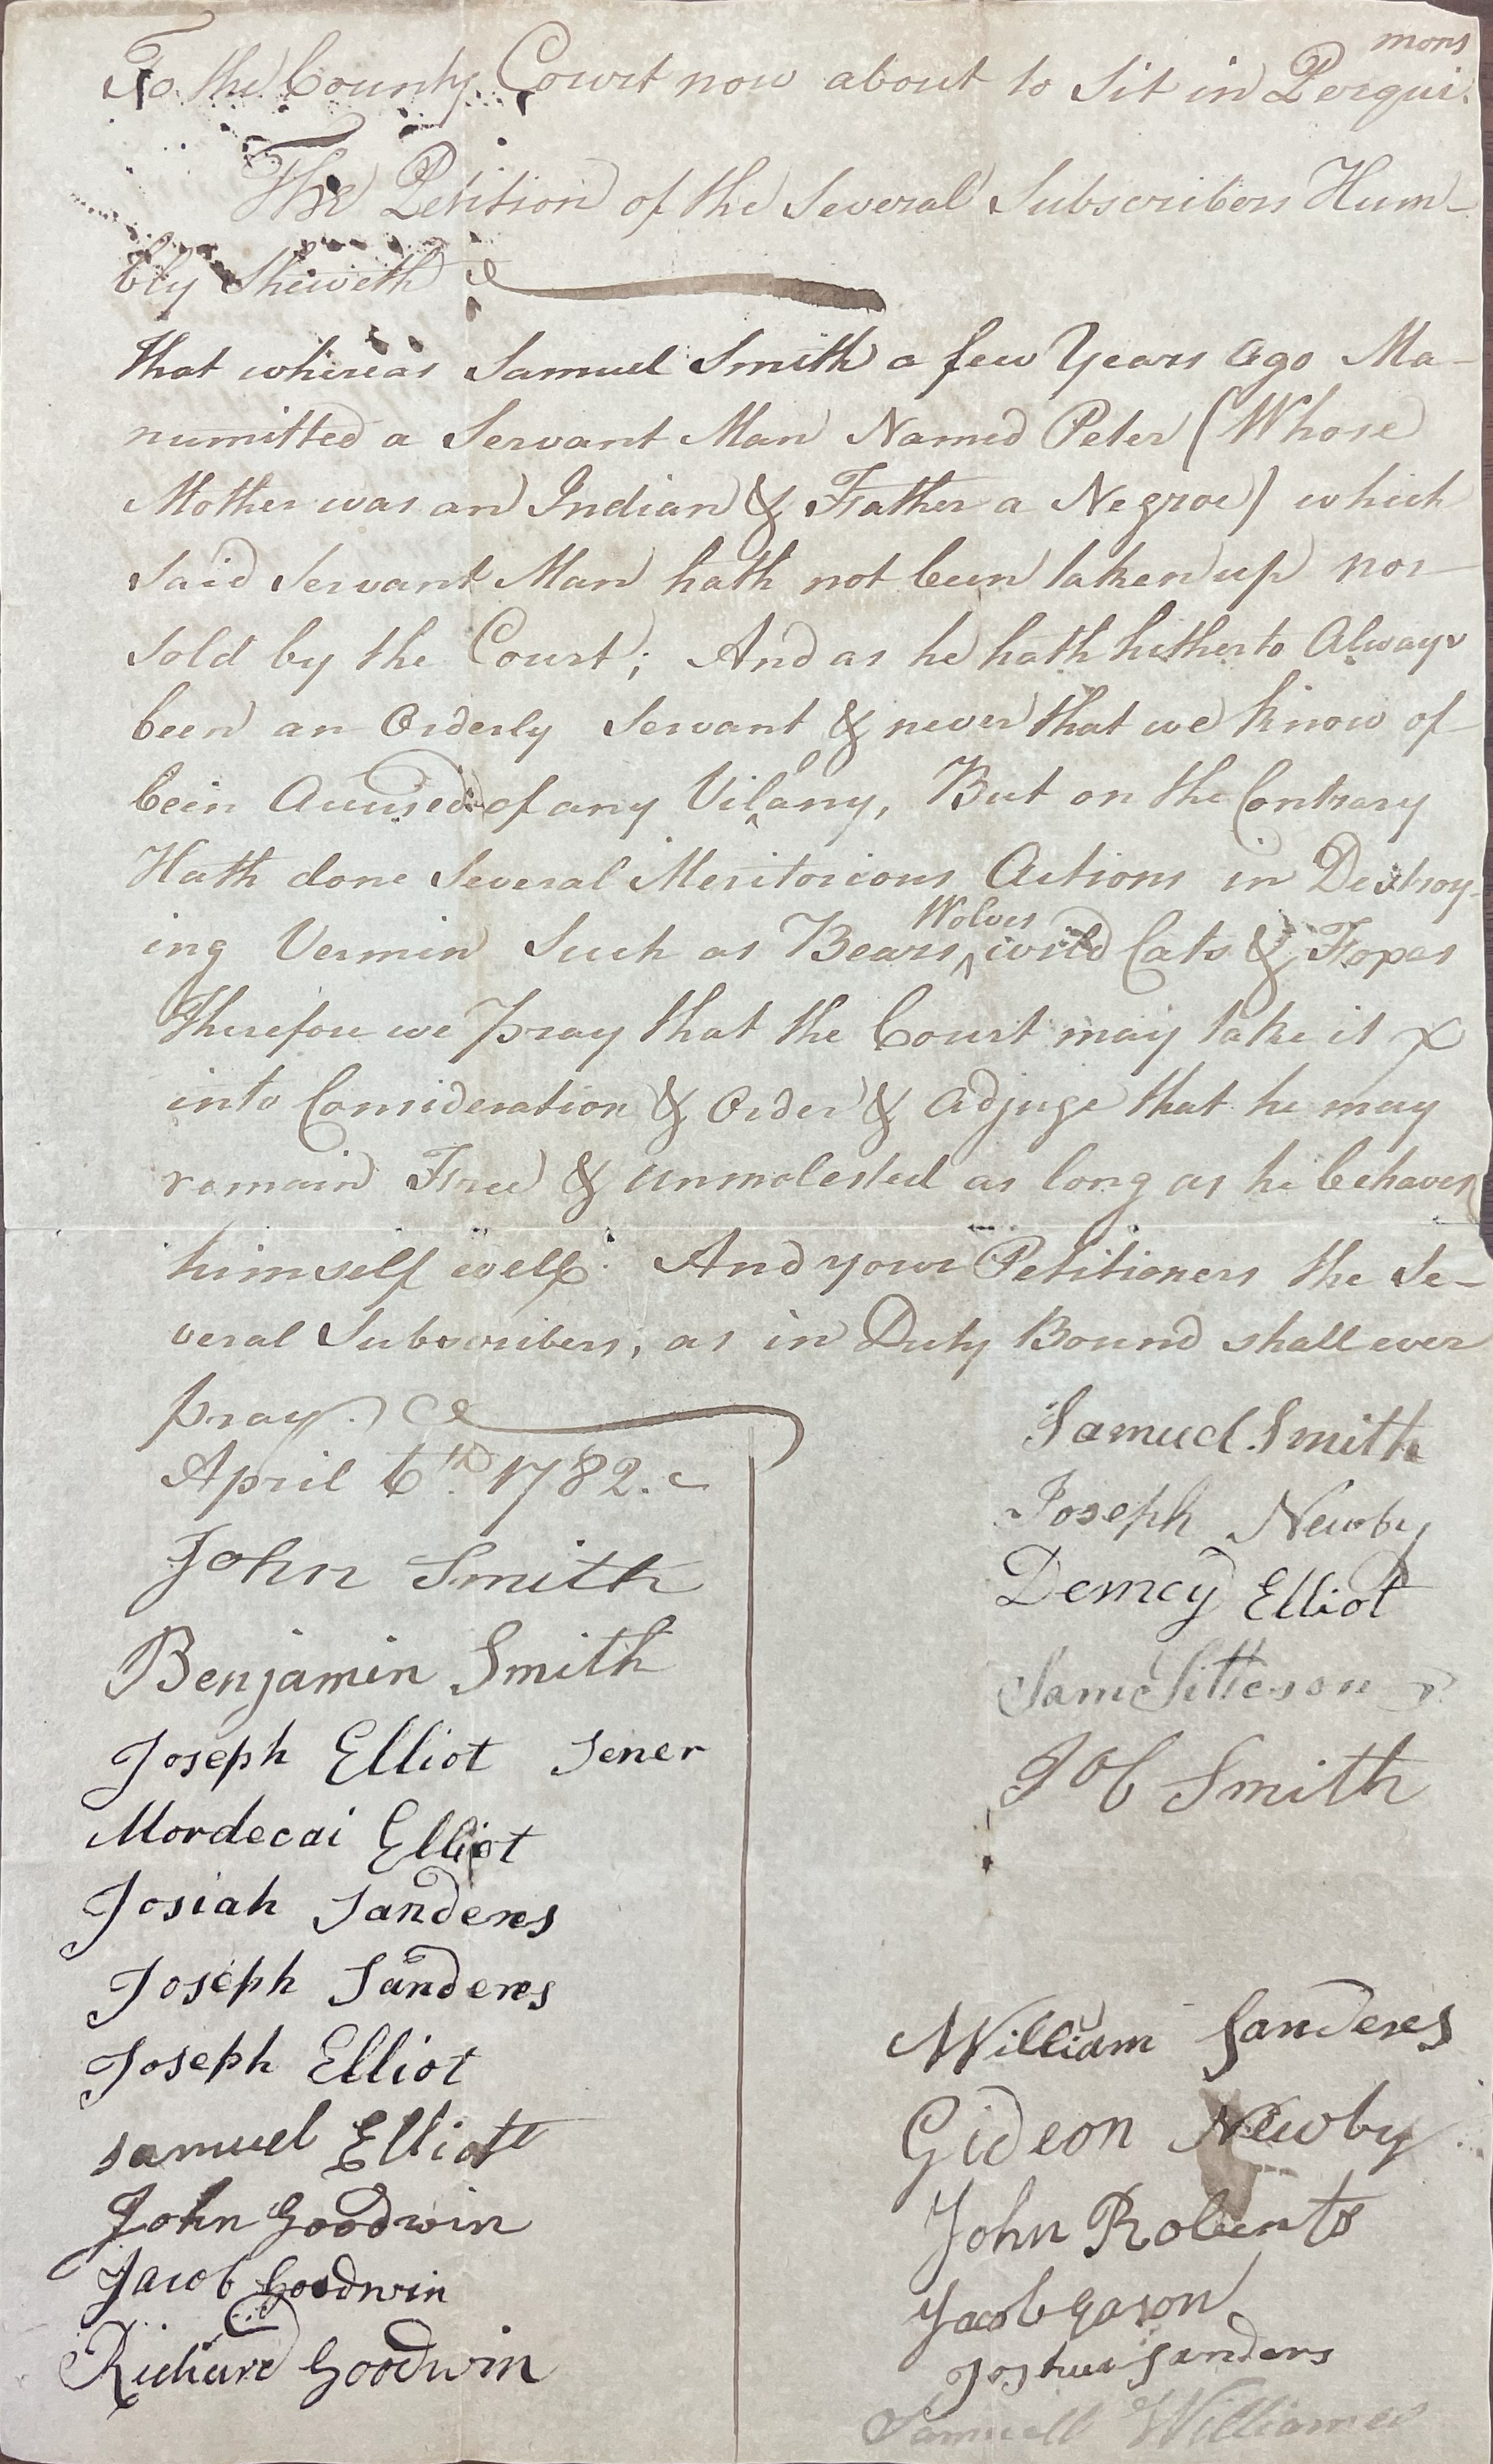 To the County Court now about to Sit in Perqui:mons
The Petition of the Several Subscribers Hum-
bly Sheweth
that whereas Samuel Smith a few Years Ago Ma-
numitted a Servant Man Named Peter (Whose
Mother was an Indian & Father a Negroe) which
said Servant Man hath not been taken up nor
sold by the Court; And as he hath hitherto Always
been an Orderly Servant & never that we know of
been Accused of any Villany, But on the Contrary
Hath done Several Meritorious Actions in Destroy-
ing Vermin Such as Bears, Wolves wild Cats & Foxes
Therefore we pray that the Court may take it
into Consideration & Order & Adjuge that he may
remain Free & unmolested as long as he behaves
himself well. And your Petitioners the Se-
veral Subscribers, as in Duty Bound shall ever
pray. &c
April 6th. 1782.
John Smith
Benjamin Smith
Joseph Elliot Sener
Mordecai Elliot
Josiah Sanderes
Joseph Sanderes
Joseph Elliot
samuel Elliott
John Goodwin
Jacob Goodwin
Richard Goodwin
Samuel Smith
Joseph Newby
Demcy Elliot
Sam Sitteson
Job Smith
William Sanderes
Gideon Newby
John Roberts
Jacob
Joshua Sanders
Samuell Williames